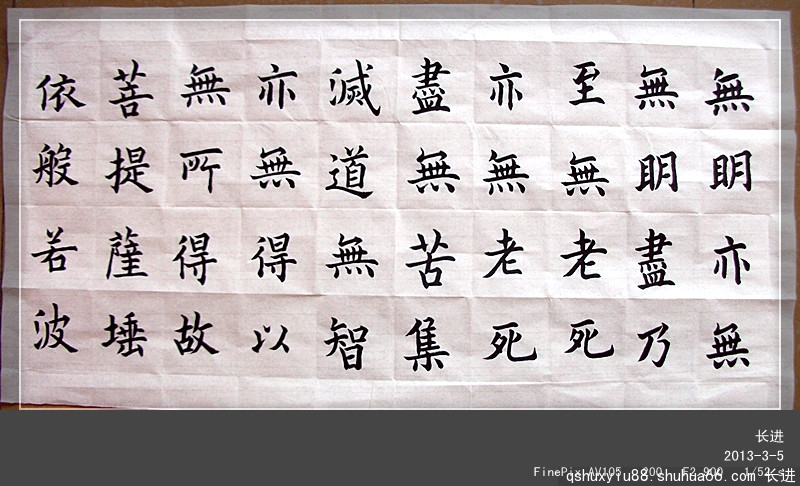 無明亦無
無明盡乃
至無老死
亦無老死
盡無苦集
滅道無智
亦無得以
無所得故
菩提薩埵
依般若波
长进
2013-3-5
FinePix AV105 200 F2.900 1/52 s
qshuxyfu88.shuhua66.com 长进